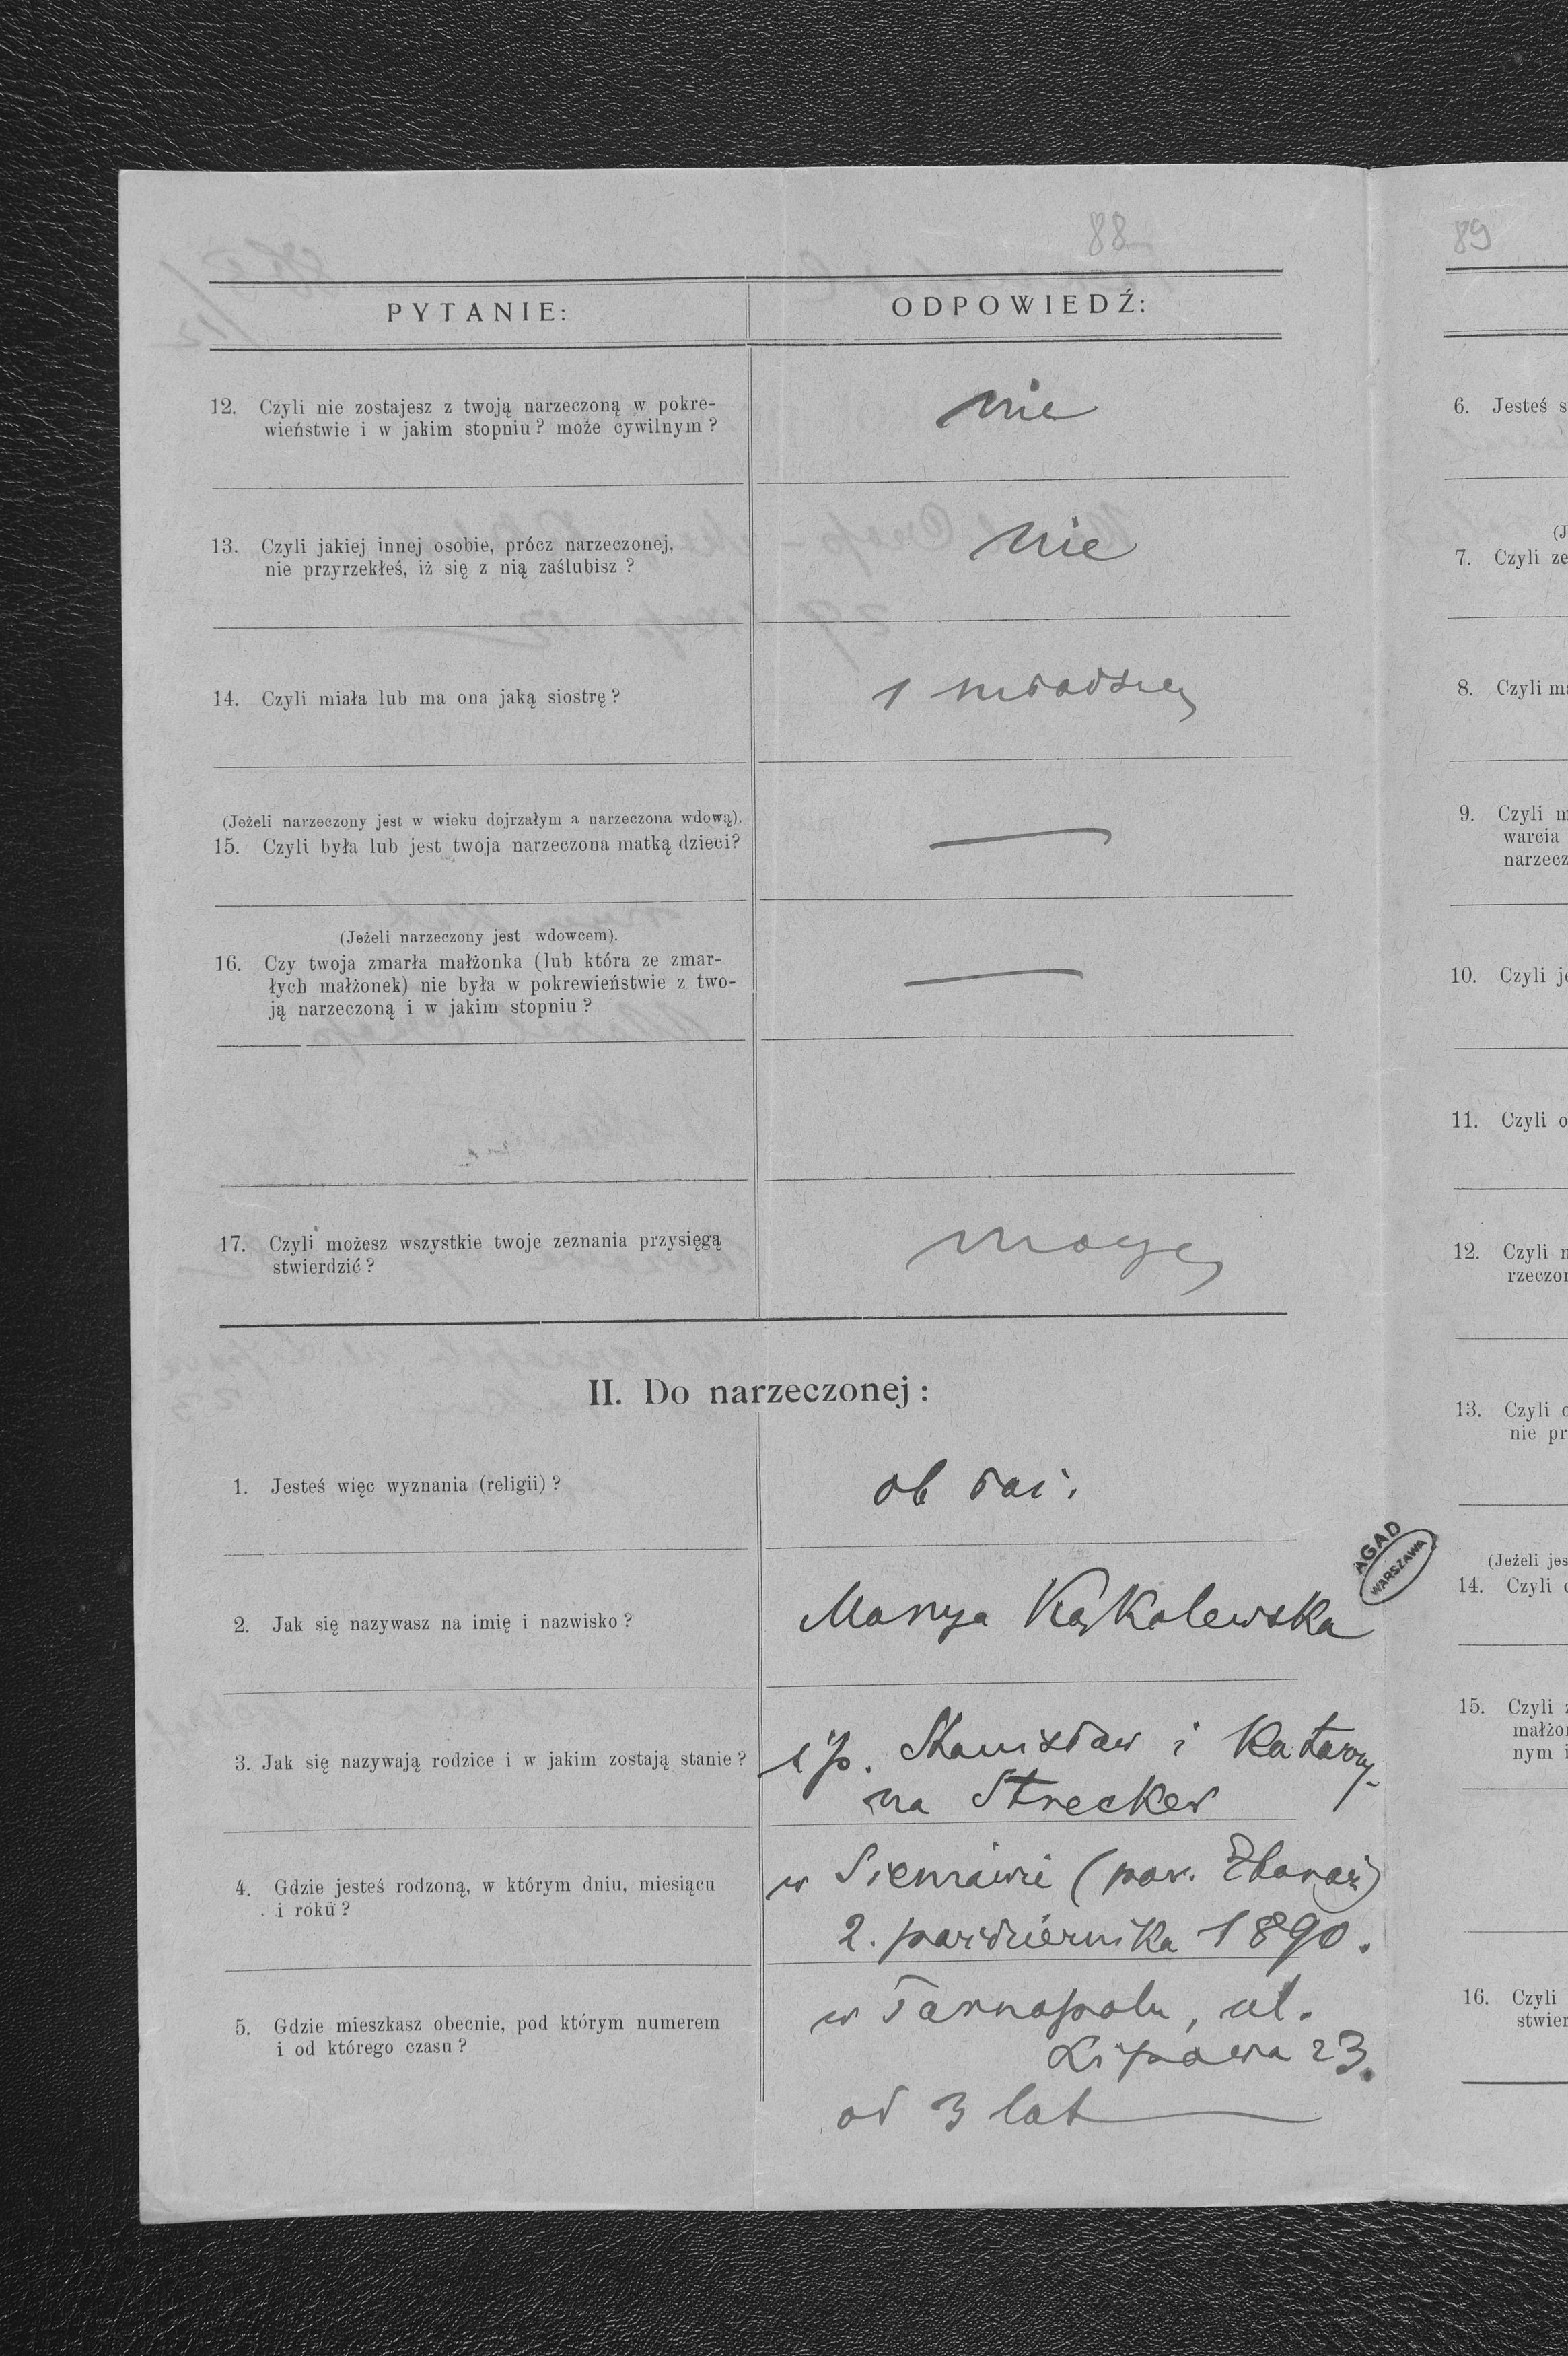 88
PYTANIE:
ODPOWIEDŹ:
12. Czyli nie zostajesz z twoją narzeczoną w pokre-
wieństwie i w jakim stopniu? może cywilnym?
nie
13. Czyli jakiej innej osobie, prócz narzeczonej,
nie przyrzekłeś, iż się z nią zaślubisz?
nie
14. Czyli miała lub ma ona jaką siostrę?
1 młodszę
(Jeżeli narzeczony jest w wieku dojrzałym a narzeczona wdową).
15. Czyli była lub jest twoja narzeczona matką dzieci?
—
(Jeżeli narzeczony jest wdowcem).
16. Czy twoja zmarła małżonka (lub która ze zmar-
łych małżonek) nie była w pokrewieństwie z two-
ją narzeczoną i w jakim stopniu?
—
17. Czyli możesz wszystkie twoje zeznania przysięgą
stwierdzić?
mogę
II. Do narzeczonej:
1. Jesteś więc wyznania (religii)?
ob łać.
2. Jak się nazywasz na imię i nazwisko?
Marya Kąkolewska
3. Jak się nazywają rodzice i w jakim zostają stanie?
śp. Stanisław i Katarzy-
na Strecker
4. Gdzie jesteś rodzoną, w którym dniu, miesiącu
i roku?
w (pow. Zbaraż)
2. października 1890.
5. Gdzie mieszkasz obecnie, pod którym numerem
i od którego czasu?
w Tarnopolu, ul.
Lipowa 23.
od 3 lat
AGAD
WARSZAWA
89
6. Jesteś s
(J
7. Czyli ze
8. Czyli ma
9. Czyli m
warcia
narzecz
10. Czyli je
11. Czyli o
12. Czyli n
rzeczon
13. Czyli
nie pr
(Jeżeli jes
14. Czyli
15. Czyli z
małżon
nym i
16. Czyli
stwier